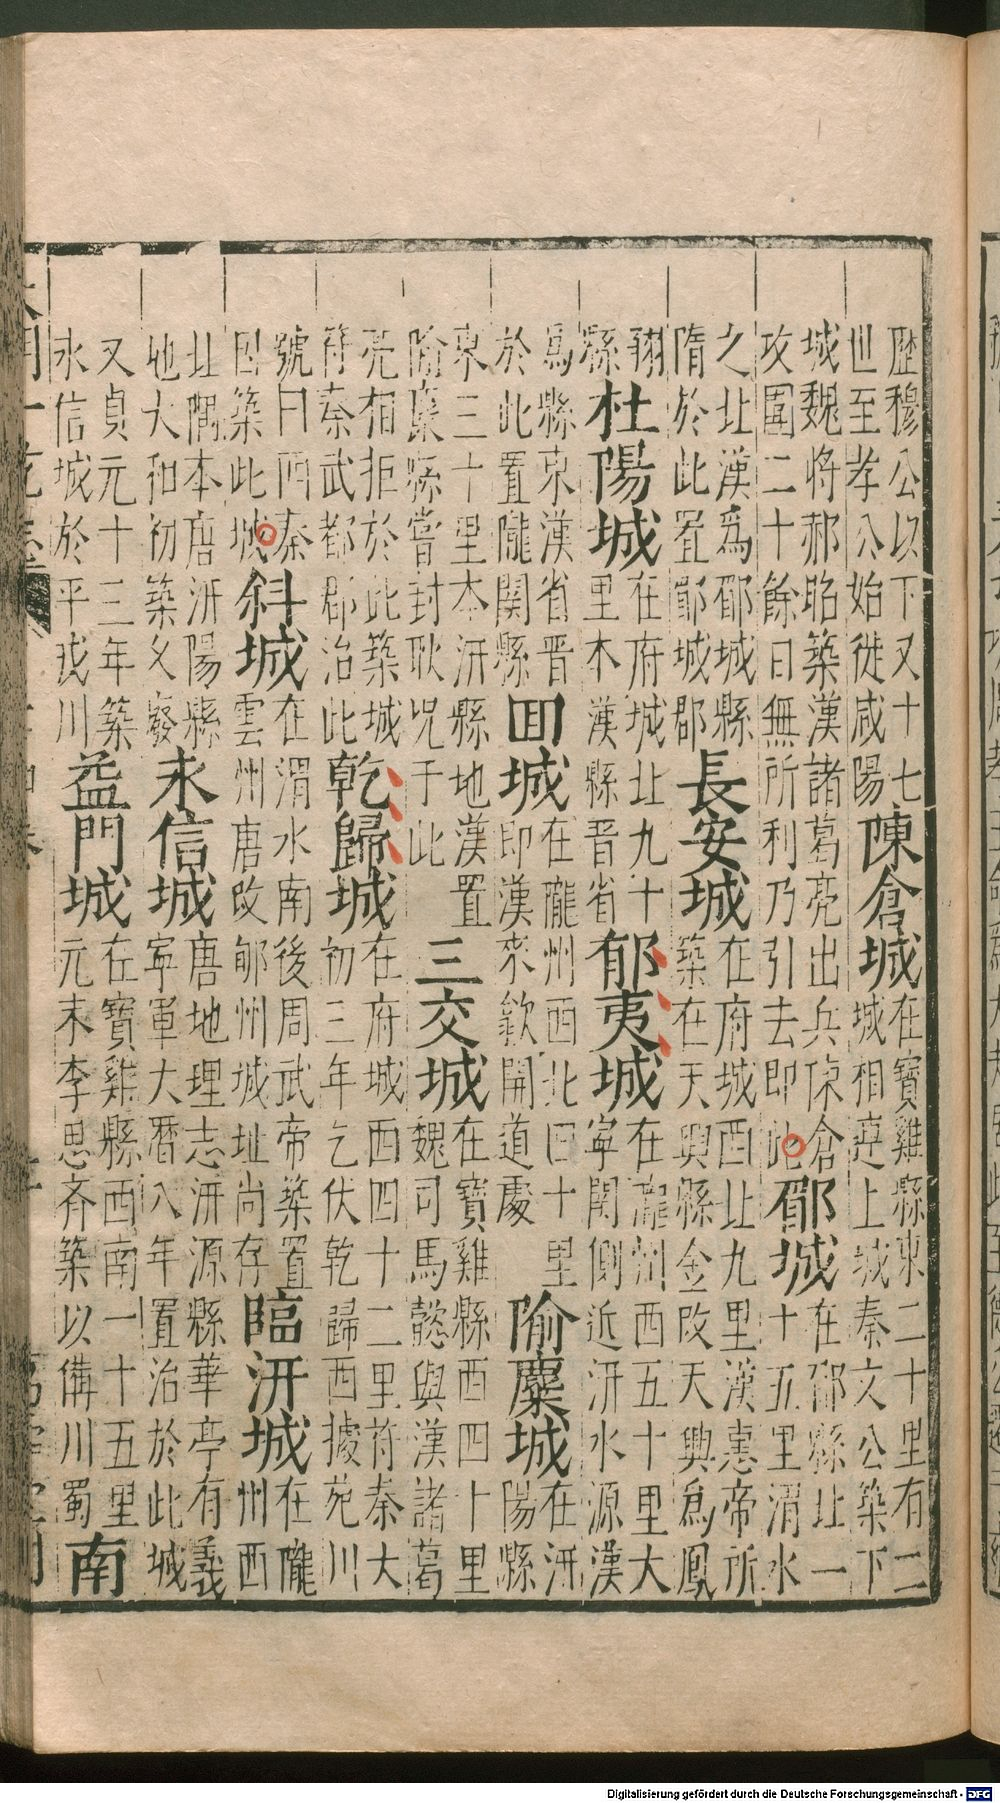 歷穆公以下又十七
世至孝公始徙咸陽
陳倉城
在寶雞縣東二十里有二
城相連上城秦文公築下
城魏將郝昭築漢諸葛亮出兵陳倉
攻圍二十餘日無所利乃引去即此
郿城
在郿縣北一
十五里渭水
之北漢爲郿城縣
隋於此置郿城郡
長安城
在府城西北九里漢惠帝所
築在天興縣金改天興爲鳳
翔
縣
杜陽城
在府城北九十
里本漢縣晉省
郁夷城
在隴州西五十里大
寧関側近汧水源漢
爲縣東漢省晉
於此置隴関縣
回城
在隴州西北四十里
即漢來歙開道處
隃麋城
在汧
陽縣
東三十里本汧縣地漢置
隃麋縣嘗封耿况于此
三交城
在寶雞縣西四十里
魏司馬懿與漢諸葛
亮相拒於此築城
符秦武都郡治此
乾歸城
在府城西四十二里符秦大
初三年乞伏乾歸西據苑川
號曰西秦
因築此城
斜城
在渭水南後周武帝築置
雲州唐改郇州城址尚存
臨汧城
在隴
州西
北隅本唐汧陽縣
地大和初築乂廢
永信城
唐地理志汧源縣華亭有義
寧軍大曆八年置治於此城
又貞元十三年築
永信城於平戎川
益門城
在寶雞縣西南一十五里
元末李思齊築以備川蜀
南
Digitalisierung gefördert durch die Deutsche Forschungsgemeinschaft - DFG